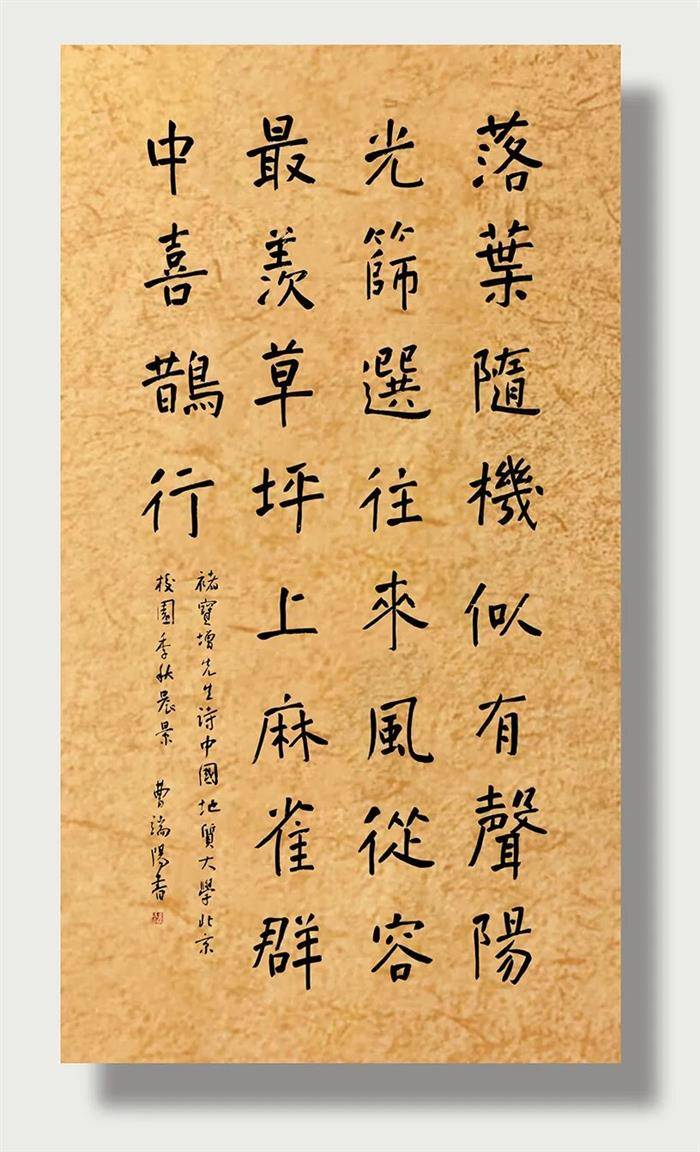 落葉隨機似有聲陽
光篩選往來風從容
最羨草坪上麻雀群
中喜鵲行
褚寶增先生诗中國地質大學北京
校園季秋晨景 曹端陽書